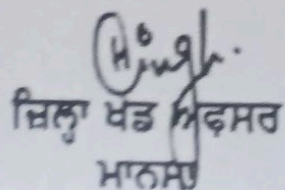 ਜ਼ਿਲ੍ਹਾ ਖੇਡ ਅਫ਼ਸਰ
ਮਾਨਸਾ